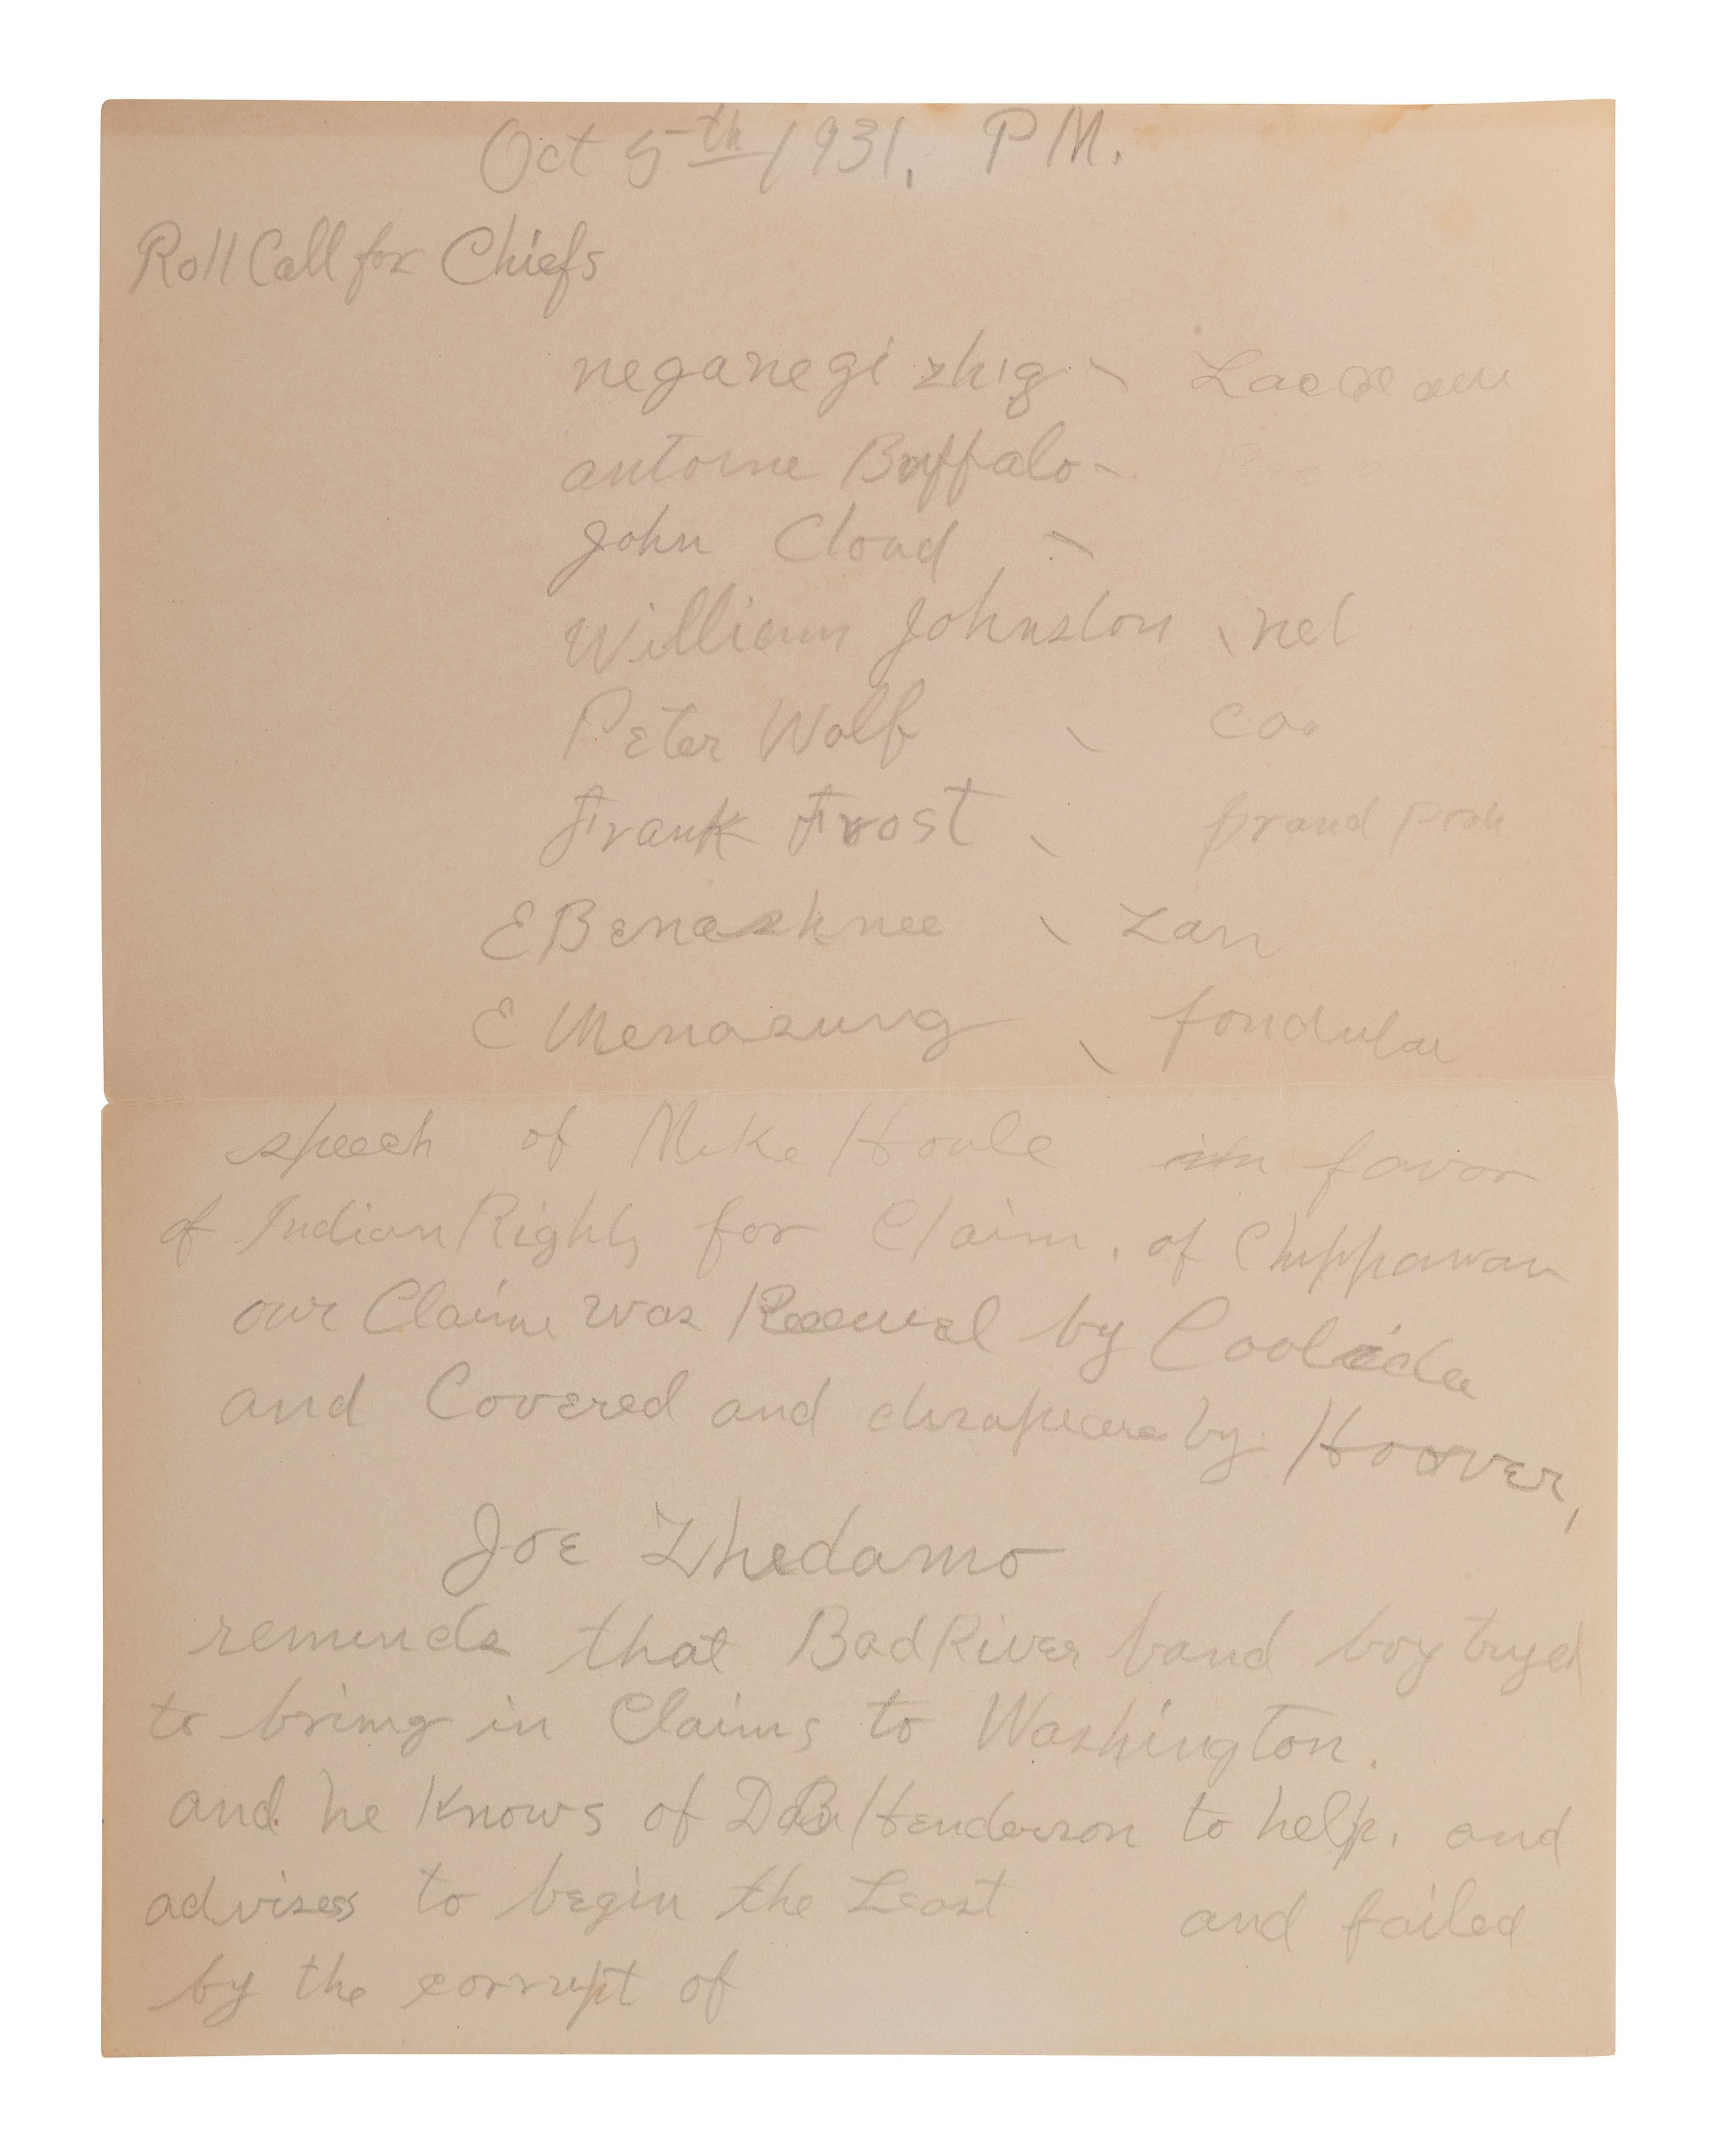 Oct 5th 1931. P M.
Roll Call for Chiefs
neganegizhig
antoine Buffalo -
John Cloud
William Johnston
Peter Wolf
Frank Frost
E Benashnee
E Menasung
speech of Mike Houle in favor
of Indian Rights for Claim, of Chippawau
our Claim was by
and Covered and by Hoover,
Joe Zhedamo
reminds that Bad River band boy tryed
to bring in Claims to Washington.
and he knows of Henderson to help, and
advises to begin the Least and failed
by the corrupt of